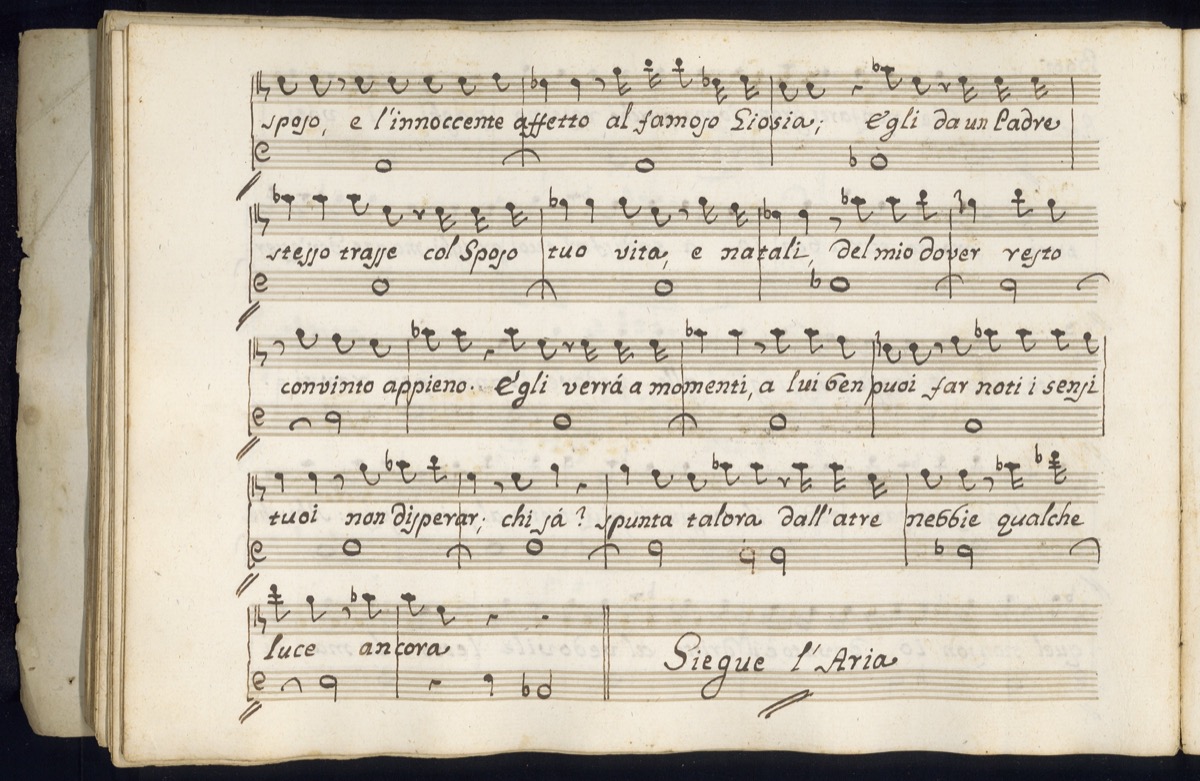 sposo, e l'innoccente affetto al famoso Giosia; Egli da un Padre
stesso trasse col Sposo tuo vita, e natali, del mio dover resto
convinto appieno. Egli verrá a momenti, a lui ben puoi far noti i sensi
tuoi non disperar; chi sá? spunta talora dall'atre nebbie qualche
luce ancora
Siegue l'Aria